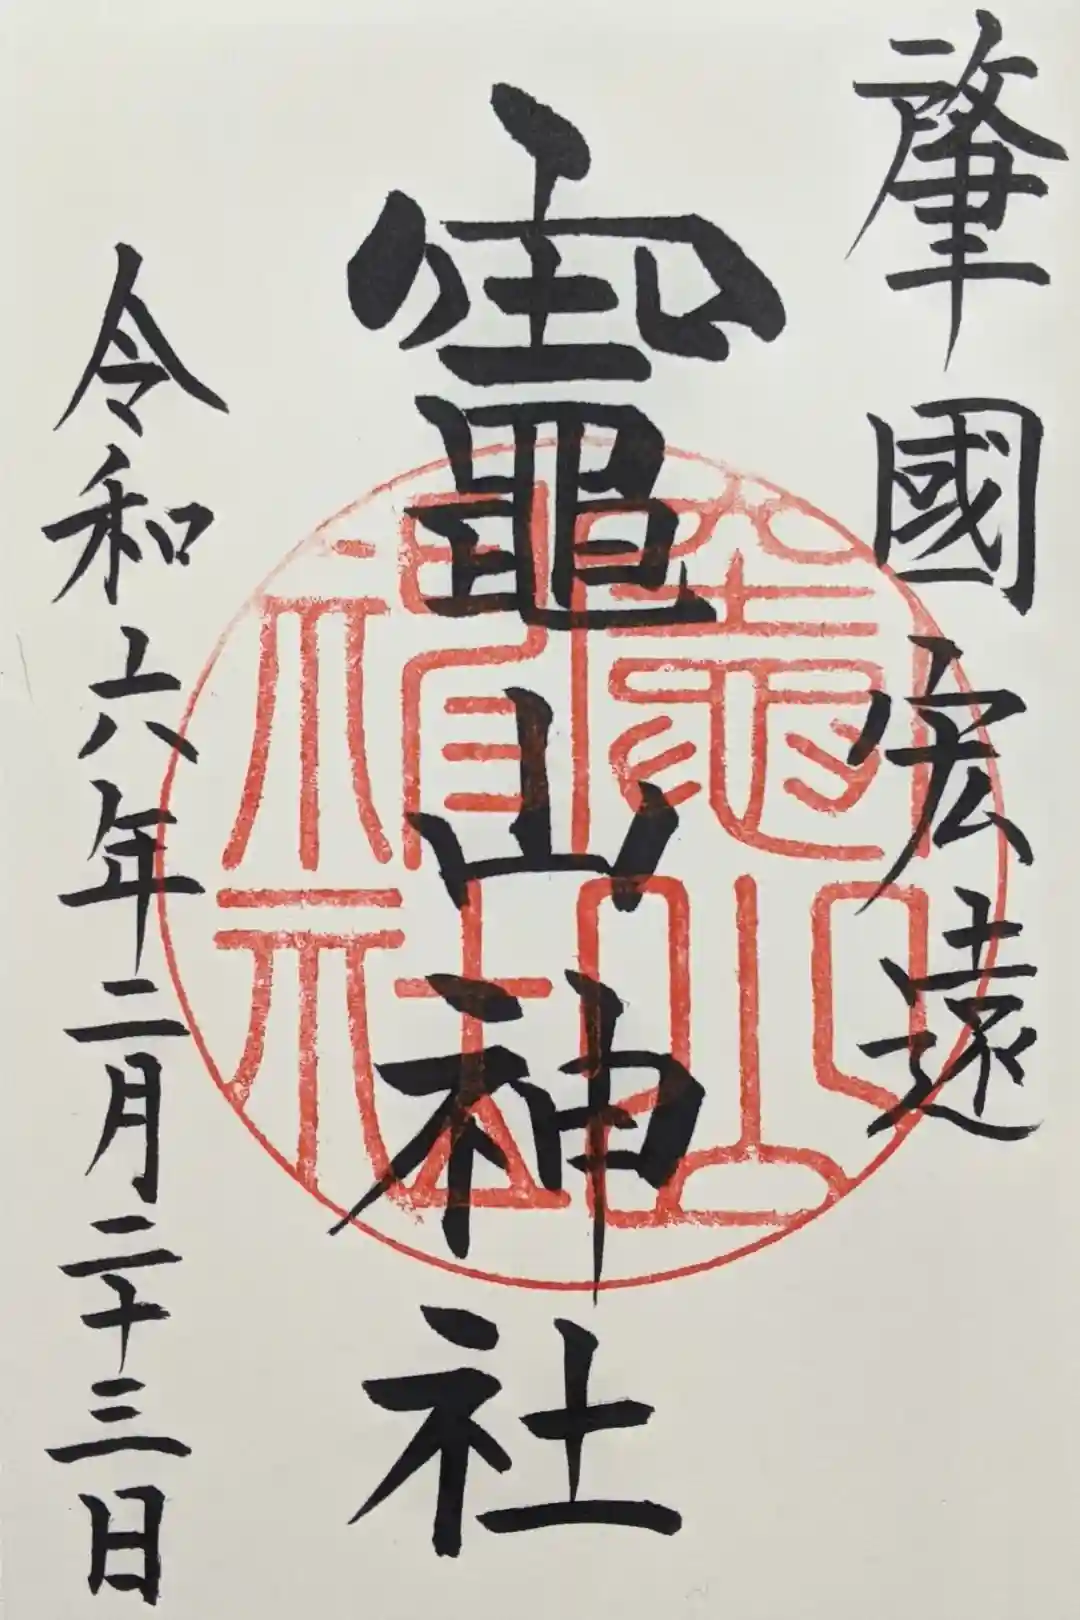 肇國宏遠
竈山神社
令和六年二月二十三日
竈山
神社